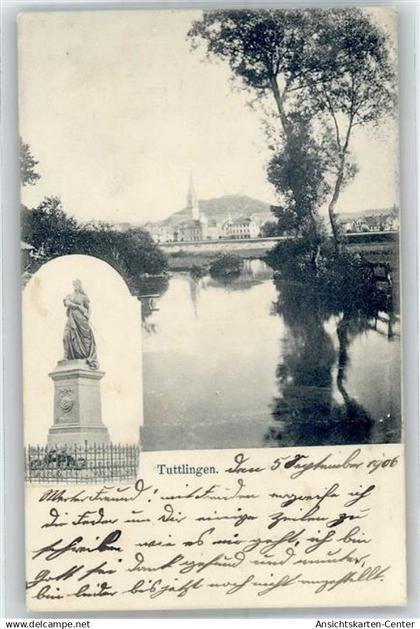 Tuttlingen. den 5 September 1906
Alter Freund! mit Freuden ergreife ich
die Feder um Dir einige Zeilen zu
schreiben wie es mir geht, ich bin
Gott sei dank gesund und munter,
bin leider bis jetzt noch nicht angestellt.
Ansichtskarten-Center